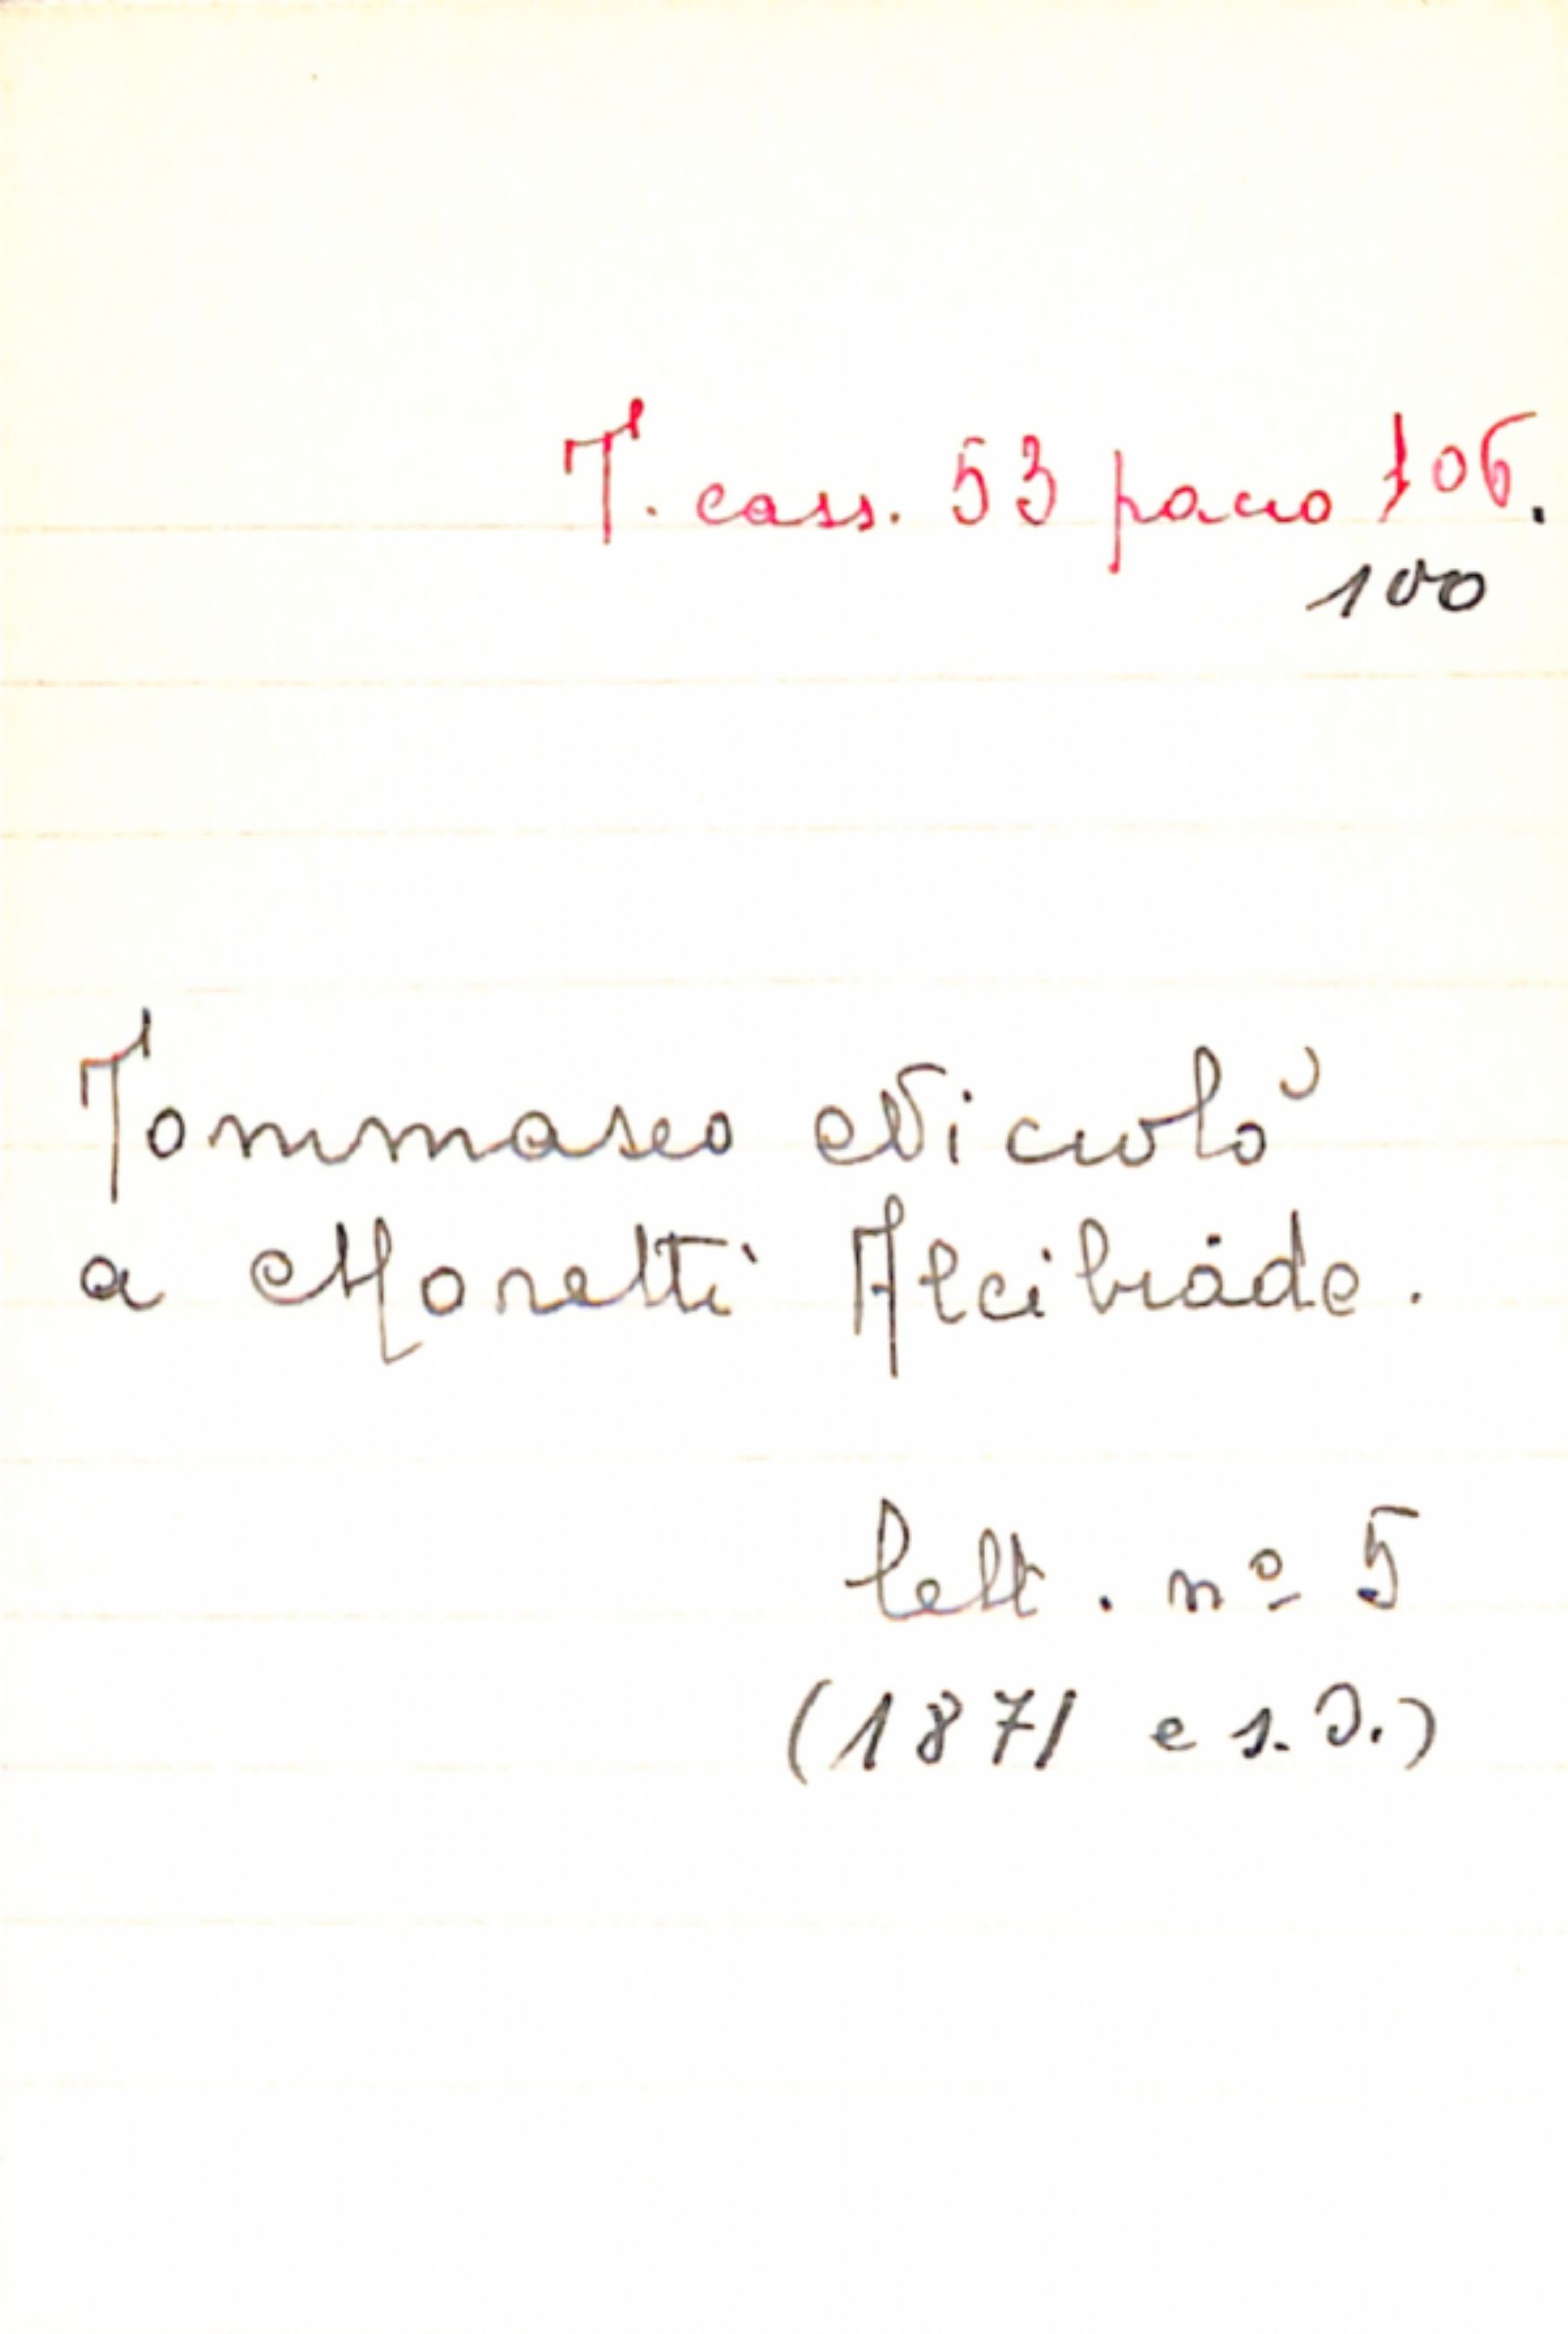 T. cass. 53 pacco 106.
100
Tommaseo Niccolò
a Moretti Alcibiade.
lett. nº 5
(1871 e s.d.)